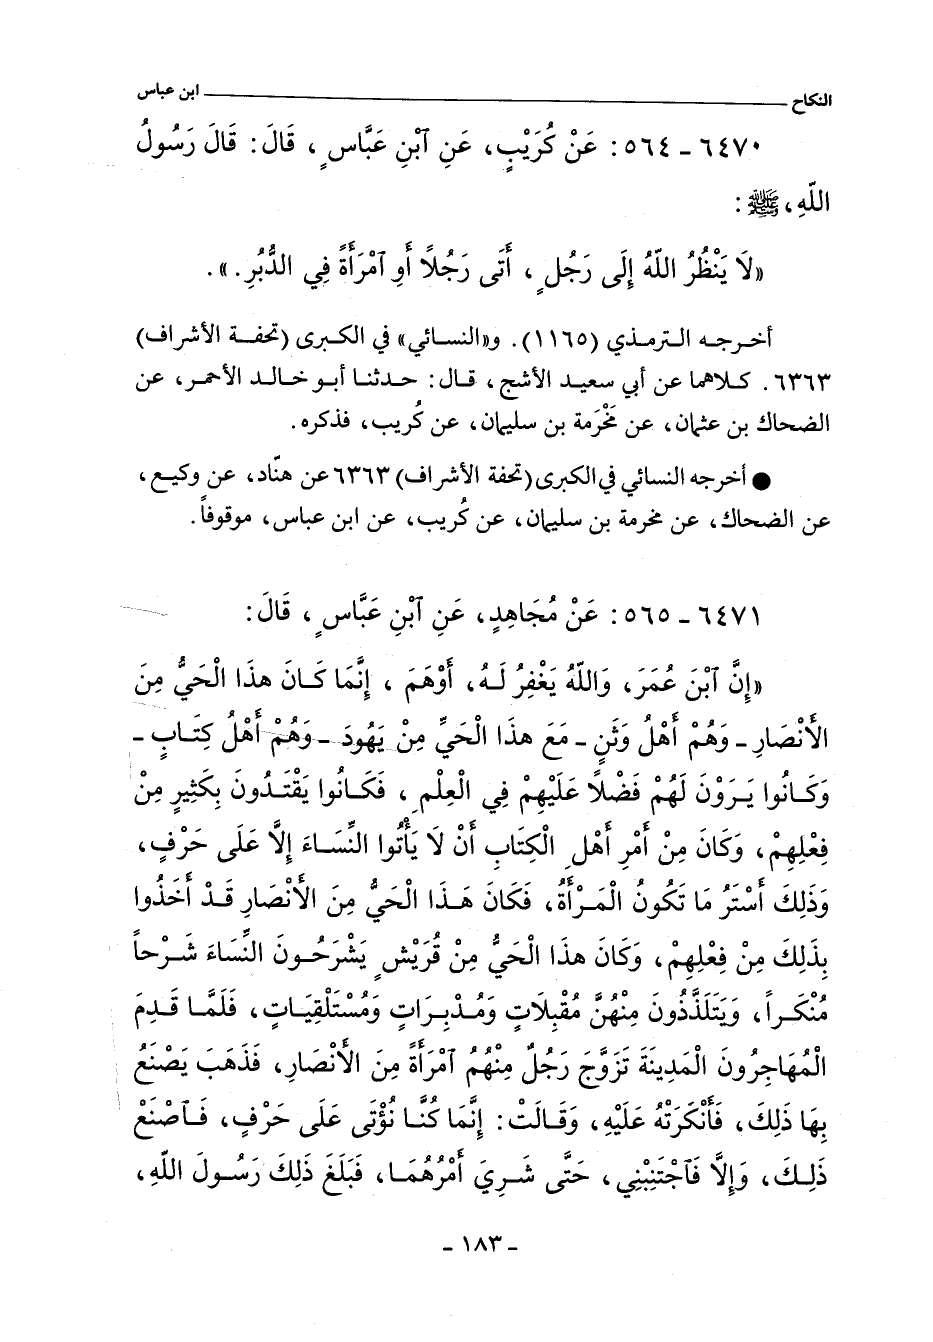 النكاح ــــــــــ ابن عباس
٦٤٧٠ ـ ٥٦٤: عَنْ كُرَيْبٍ، عَنِ ٱبْنِ عَبَّاسٍ، قَالَ: قَالَ رَسُولُ
اللّهِ، ﷺ:
«لَا يَنْظُرُ اللّهُ إِلَى رَجُلٍ، أَتَى رَجُلاً أَوِ ٱمْرَأَةً فِي الدُّبُرِ.».
أخرجه الترمذي (١١٦٥). و«النسائي» في الكبرى (تحفة الأشراف)
٦٣٦٣. كلاهما عن أبي سعيد الأشج، قال: حدثنا أبو خالد الأحمر، عن
الضحاك بن عثمان، عن مَخْرَمة بن سليمان، عن كُريب، فذكره.
● أخرجه النسائي في الكبرى (تحفة الأشراف) ٦٣٦٣ عن هنّاد، عن وكيع،
عن الضحاك، عن مخرمة بن سليمان، عن كُريب، عن ابن عباس، موقوفاً.
٦٤٧١ ـ ٥٦٥: عَنْ مُجَاهِدٍ، عَنِ ٱبْنِ عَبَّاسٍ، قَالَ:
«إِنَّ ٱبْنَ عُمَرَ، وَاللّهُ يَغْفِرُ لَهُ، أَوْهَمَ، إِنَّمَا كَانَ هذَا الْحَيُّ مِنَ
الأَنْصَارِ ـ وَهُمْ أَهْلُ وَثَنٍ ـ مَعَ هذَا الْحَيِّ مِنْ يَهُودَ ـ وَهُمْ أَهْلُ كِتَابٍ ـ
وَكَانُوا يَرَوْنَ لَهُمْ فَضْلاً عَلَيْهِمْ فِي الْعِلْمِ، فَكَانُوا يَقْتَدُونَ بِكَثِيرٍ مِنْ
فِعْلِهِمْ، وَكَانَ مِنْ أَمْرِ أَهْلِ الْكِتَابِ أَنْ لَا يَأْتُوا النِّسَاءَ إِلَّا عَلَى حَرْفٍ،
وَذَلِكَ أَسْتَرُ مَا تَكُونُ الْمَرْأَةُ، فَكَانَ هَذَا الْحَيُّ مِنَ الأَنْصَارِ قَدْ أَخَذُوا
بِذَلِكَ مِنْ فِعْلِهِمْ، وَكَانَ هذَا الْحَيُّ مِنْ قُرَيْشٍ يَشْرَحُونَ النِّسَاءَ شَرْحاً
مُنْكَراً، وَيَتَلَذَّذُونَ مِنْهُنَّ مُقْبِلَاتٍ وَمُدْبِرَاتٍ وَمُسْتَلْقِيَاتٍ، فَلَمَّا قَدِمَ
الْمُهَاجِرُونَ الْمَدِينَةَ تَزَوَّجَ رَجُلٌ مِنْهُمُ ٱمْرَأَةً مِنَ الأَنْصَارِ، فَذَهَبَ يَصْنَعُ
بِهَا ذَلِكَ، فَأَنْكَرَتْهُ عَلَيْهِ، وَقَالَتْ: إِنَّمَا كُنَّا نُؤْتَى عَلَى حَرْفٍ، فَٱصْنَعْ
ذَلِكَ، وَإِلَّا فَٱجْتَنِبْنِي، حَتَّى شَرِيَ أَمْرُهُمَا، فَبَلَغَ ذَلِكَ رَسُولَ اللّهِ،
ـ ١٨٣ ـ